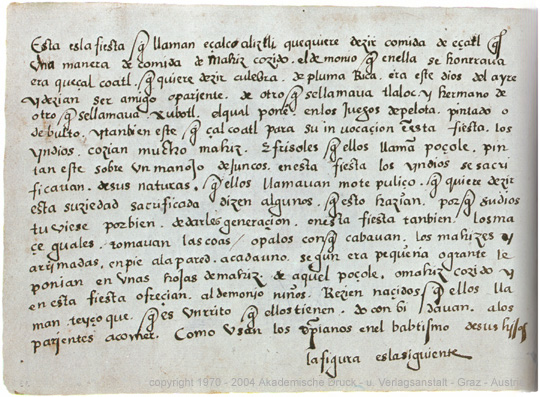 Esta es la fiesta q̃ llaman eçalcoaliztli que quiere dezir comida de eçatl q̃ es
vna manera de comida de mahiz cozido. el demonio q̃ en ella se honrraua
era queçalcoatl. q̃ quiere dezir culebra. de pluma Rica. era este dios del ayre
y dezian ser amigo o pariente. de otro q̃ se llamaua tlaloc. y hermano de
otro q̃ se llamaua xubotl. el qual ponẽ. en los Juegos de pelota. pintado o
de bulto. y tanbien este q̃çalcoatl para su invocaçion en esta fiesta. los
yndios. cozian mucho mahiz. E frisoles q̃ ellos llamã poçole. pin
tan este sobre un manojo de Juncos. en esta fiesta los yndios se sacri
ficauan. de sus naturas. q̃ ellos llamauan motepuliço. q̃ quiere dezir
esta suziedad sacrificada dizen algunos. q̃ esto hazian. porq̃ su dios
tuviese por bien. de darles generaçion. en esta fiesta tanbien los ma
çeguales. tomauan las coas / o palos con q̃ cabauan. los mahizes y
arrimadas, en pie a la pared. a cada vno. segun era pequeña o grante le
ponian en unas hojas de mahiz. de aquel poçole. o mahiz cozido y
en esta fiesta ofreçian. al demonio niños. Rezien nacidos q̃ ellos lla
man. teyçoque. q̃ es un rrito q̃ ellos tienen. do conbidauan. a los
parientes a comer. Como usan los xp̃ianos en el baptismo de sus hijos
la figura es la siguiente
copyright 1970 - 2004 Akademische Druck - u. Verlagsanstalt - Graz - Austria